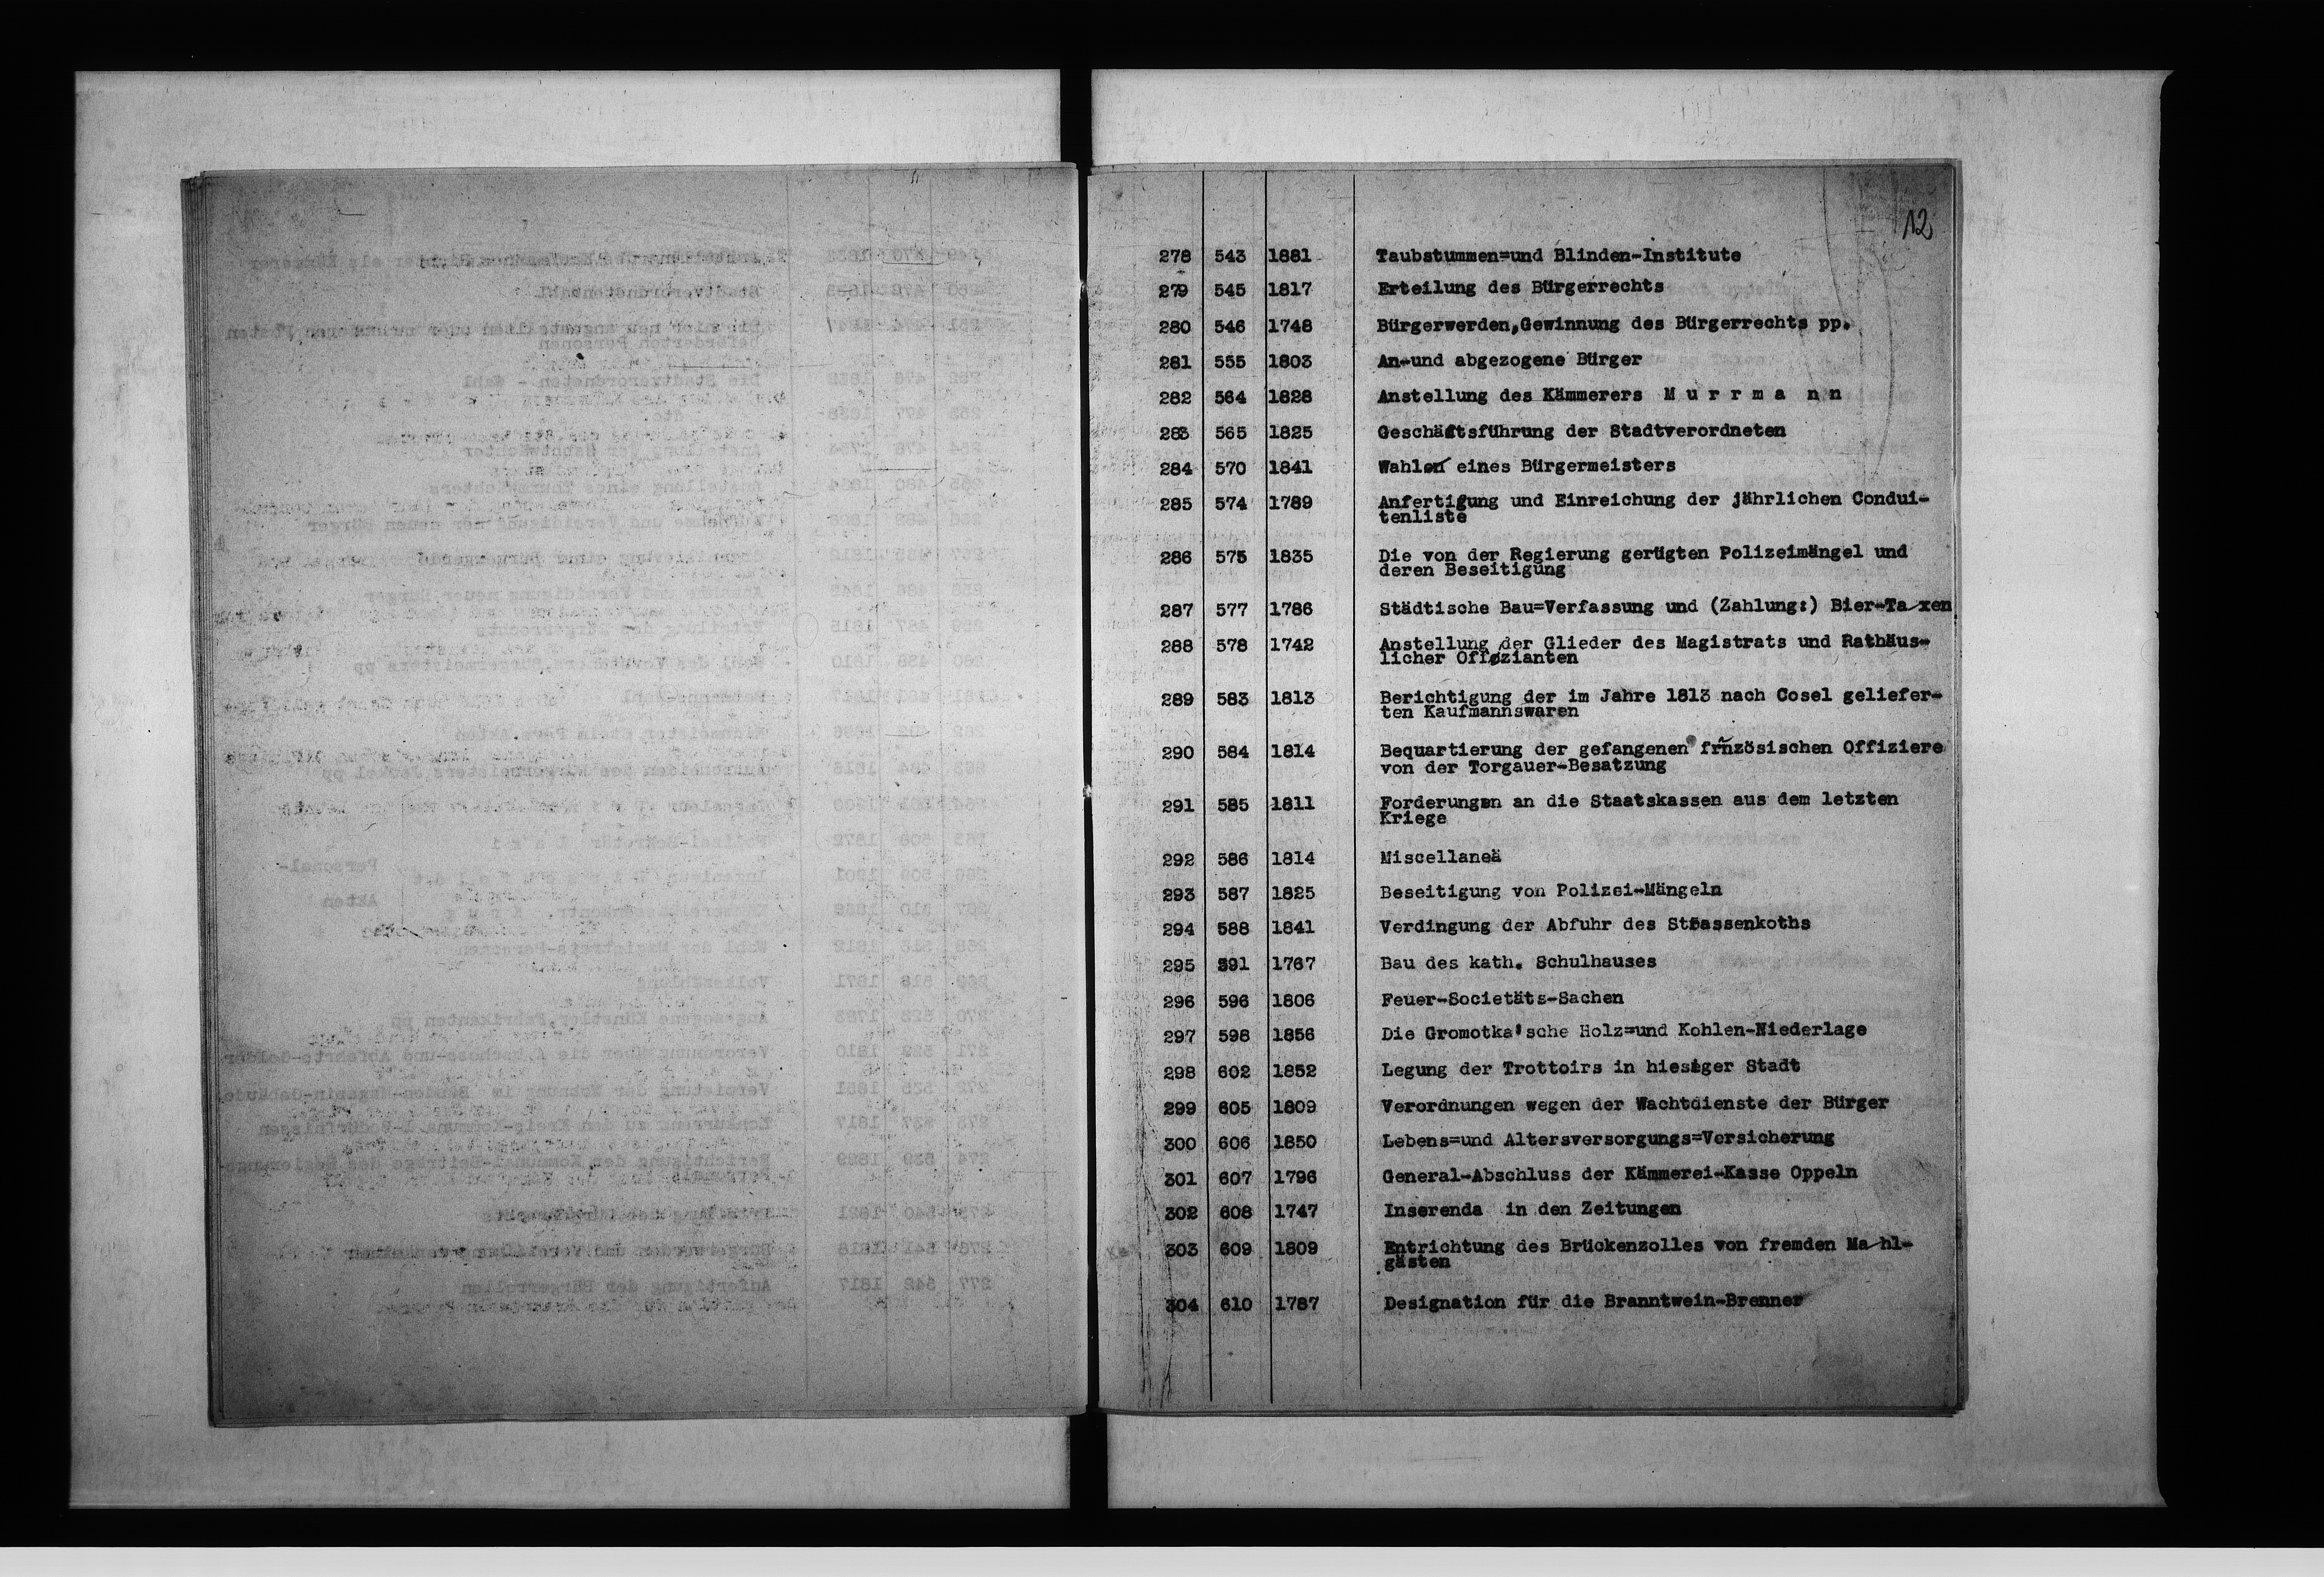 12
278 543 1881 Taubstummen=und Blinden-Institute
279 545 1817 Erteilung des Bürgerrechts
280 546 1748 Bürgerwerden,Gewinnung des Bürgerrechts pp.
281 555 1803 An-und abgezogene Bürger
282 564 1828 Anstellung des Kämmerers M u r r m a n n
283 565 1825 Geschäftsführung der Stadtverordneten
284 570 1841 Wahlen eines Bürgermeisters
285 574 1789 Anfertigung und Einreichung der jährlichen Condui-
tenliste
286 575 1835 Die von der Regierung gerügten Polizeimängel und
deren Beseitigung
287 577 1786 Städtische Bau=Verfassung und (Zahlung:) Bier-Taxen
288 578 1742 Anstellung der Glieder des Magistrats und Rathäus-
licher Offizianten
289 583 1813 Berichtigung der im Jahre 1813 nach Cosel geliefer-
ten Kaufmannswaren
290 584 1814 Bequartierung der gefangenen frnzösischen Offiziere
von der Torgauer-Besatzung
291 585 1811 Forderungen an die Staatskassen aus dem letzten
Kriege
292 586 1814 Miscellanea
293 587 1825 Beseitigung von Polizei-Mängeln
294 588 1841 Verdingung der Abfuhr des Strassenkoths
295 591 1767 Bau des kath. Schulhauses
296 596 1806 Feuer-Societäts-Sachen
297 598 1856 Die Gromotka'sche Holz=und Kohlen-Niederlage
298 602 1852 Legung der Trottoirs in hiesiger Stadt
299 605 1809 Verordnungen wegen der Wachtdienste der Bürger
300 606 1850 Lebens=und Altersversorgungs=Versicherung
301 607 1796 General-Abschluss der Kämmerei-Kasse Oppeln
302 608 1747 Inserenda in den Zeitungen
303 609 1809 Entrichtung des Brückenzolles von fremden Mahl-
gästen
304 610 1787 Designation für die Branntwein-Brenner